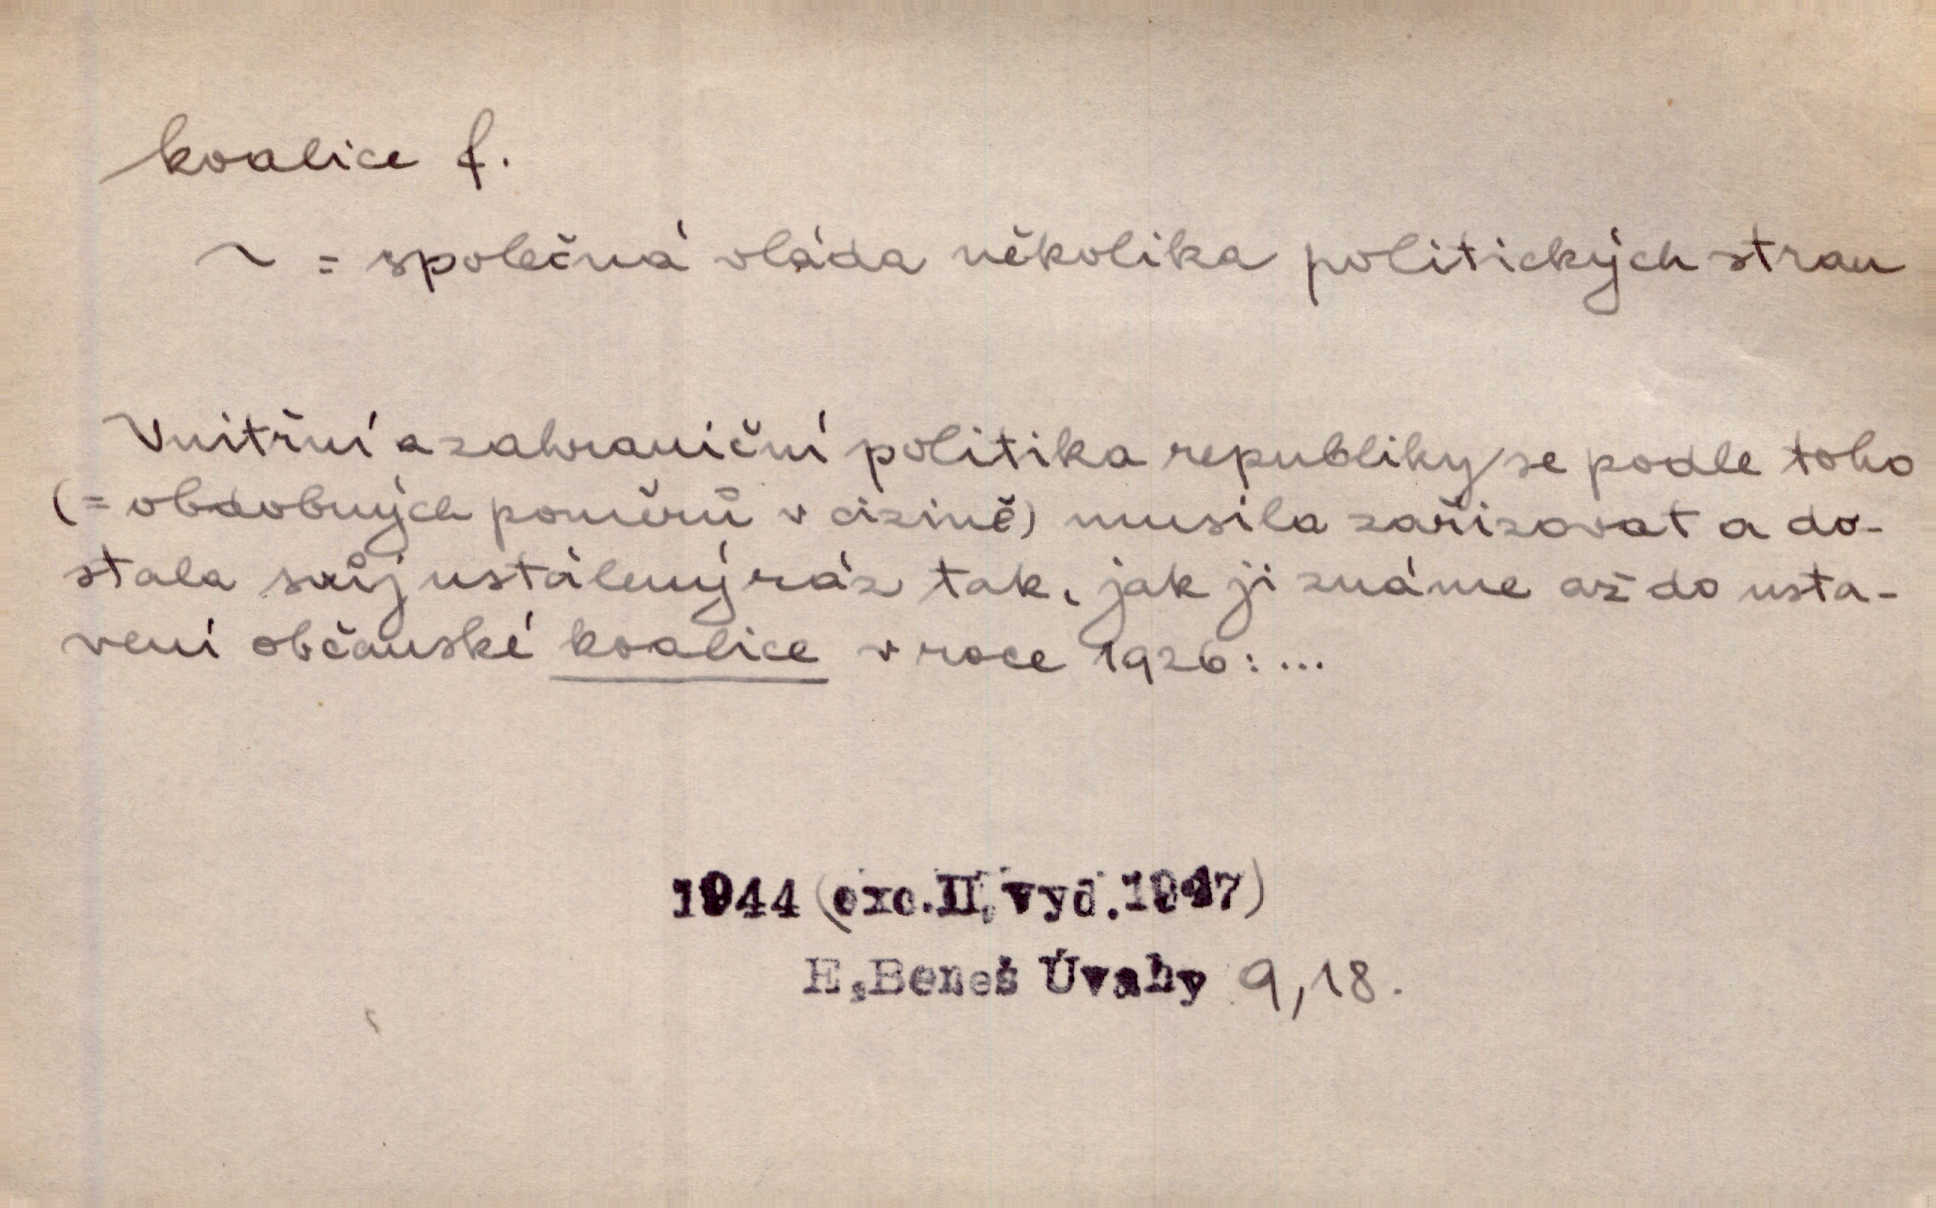 koalice f.
~ = společná vláda několika politických stran
Vnitřní a zahraniční politika republiky se podle toho
(= obdobných poměrů v cizině) musila zařizovat a do-
stala svůj ustálený ráz tak, jak ji známe až do usta-
vení občanské koalice v roce 1926: ...
1944 (exc. II. vyd. 1947)
E. Beneš Úvahy 9, 18.